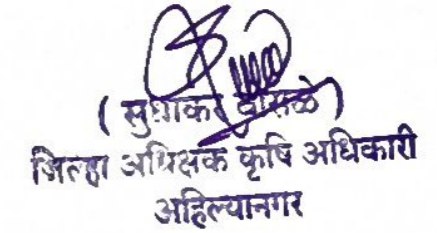 ( सुधाकर बोराळे )
जिल्हा अधिक्षक कृषि अधिकारी
अहिल्यानगर